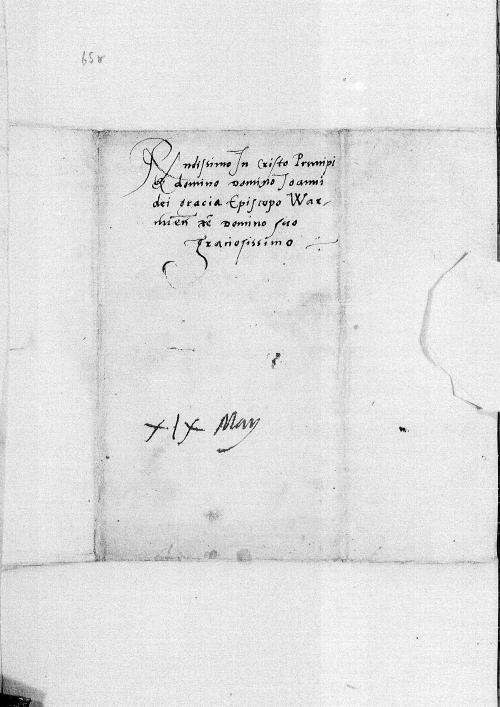 65v
R[everendissimo] In Cristo Principi
et domino domino Joanni
dei gracia Episcopo War-
mien etc Domino suo
graciosissimo
XIX May